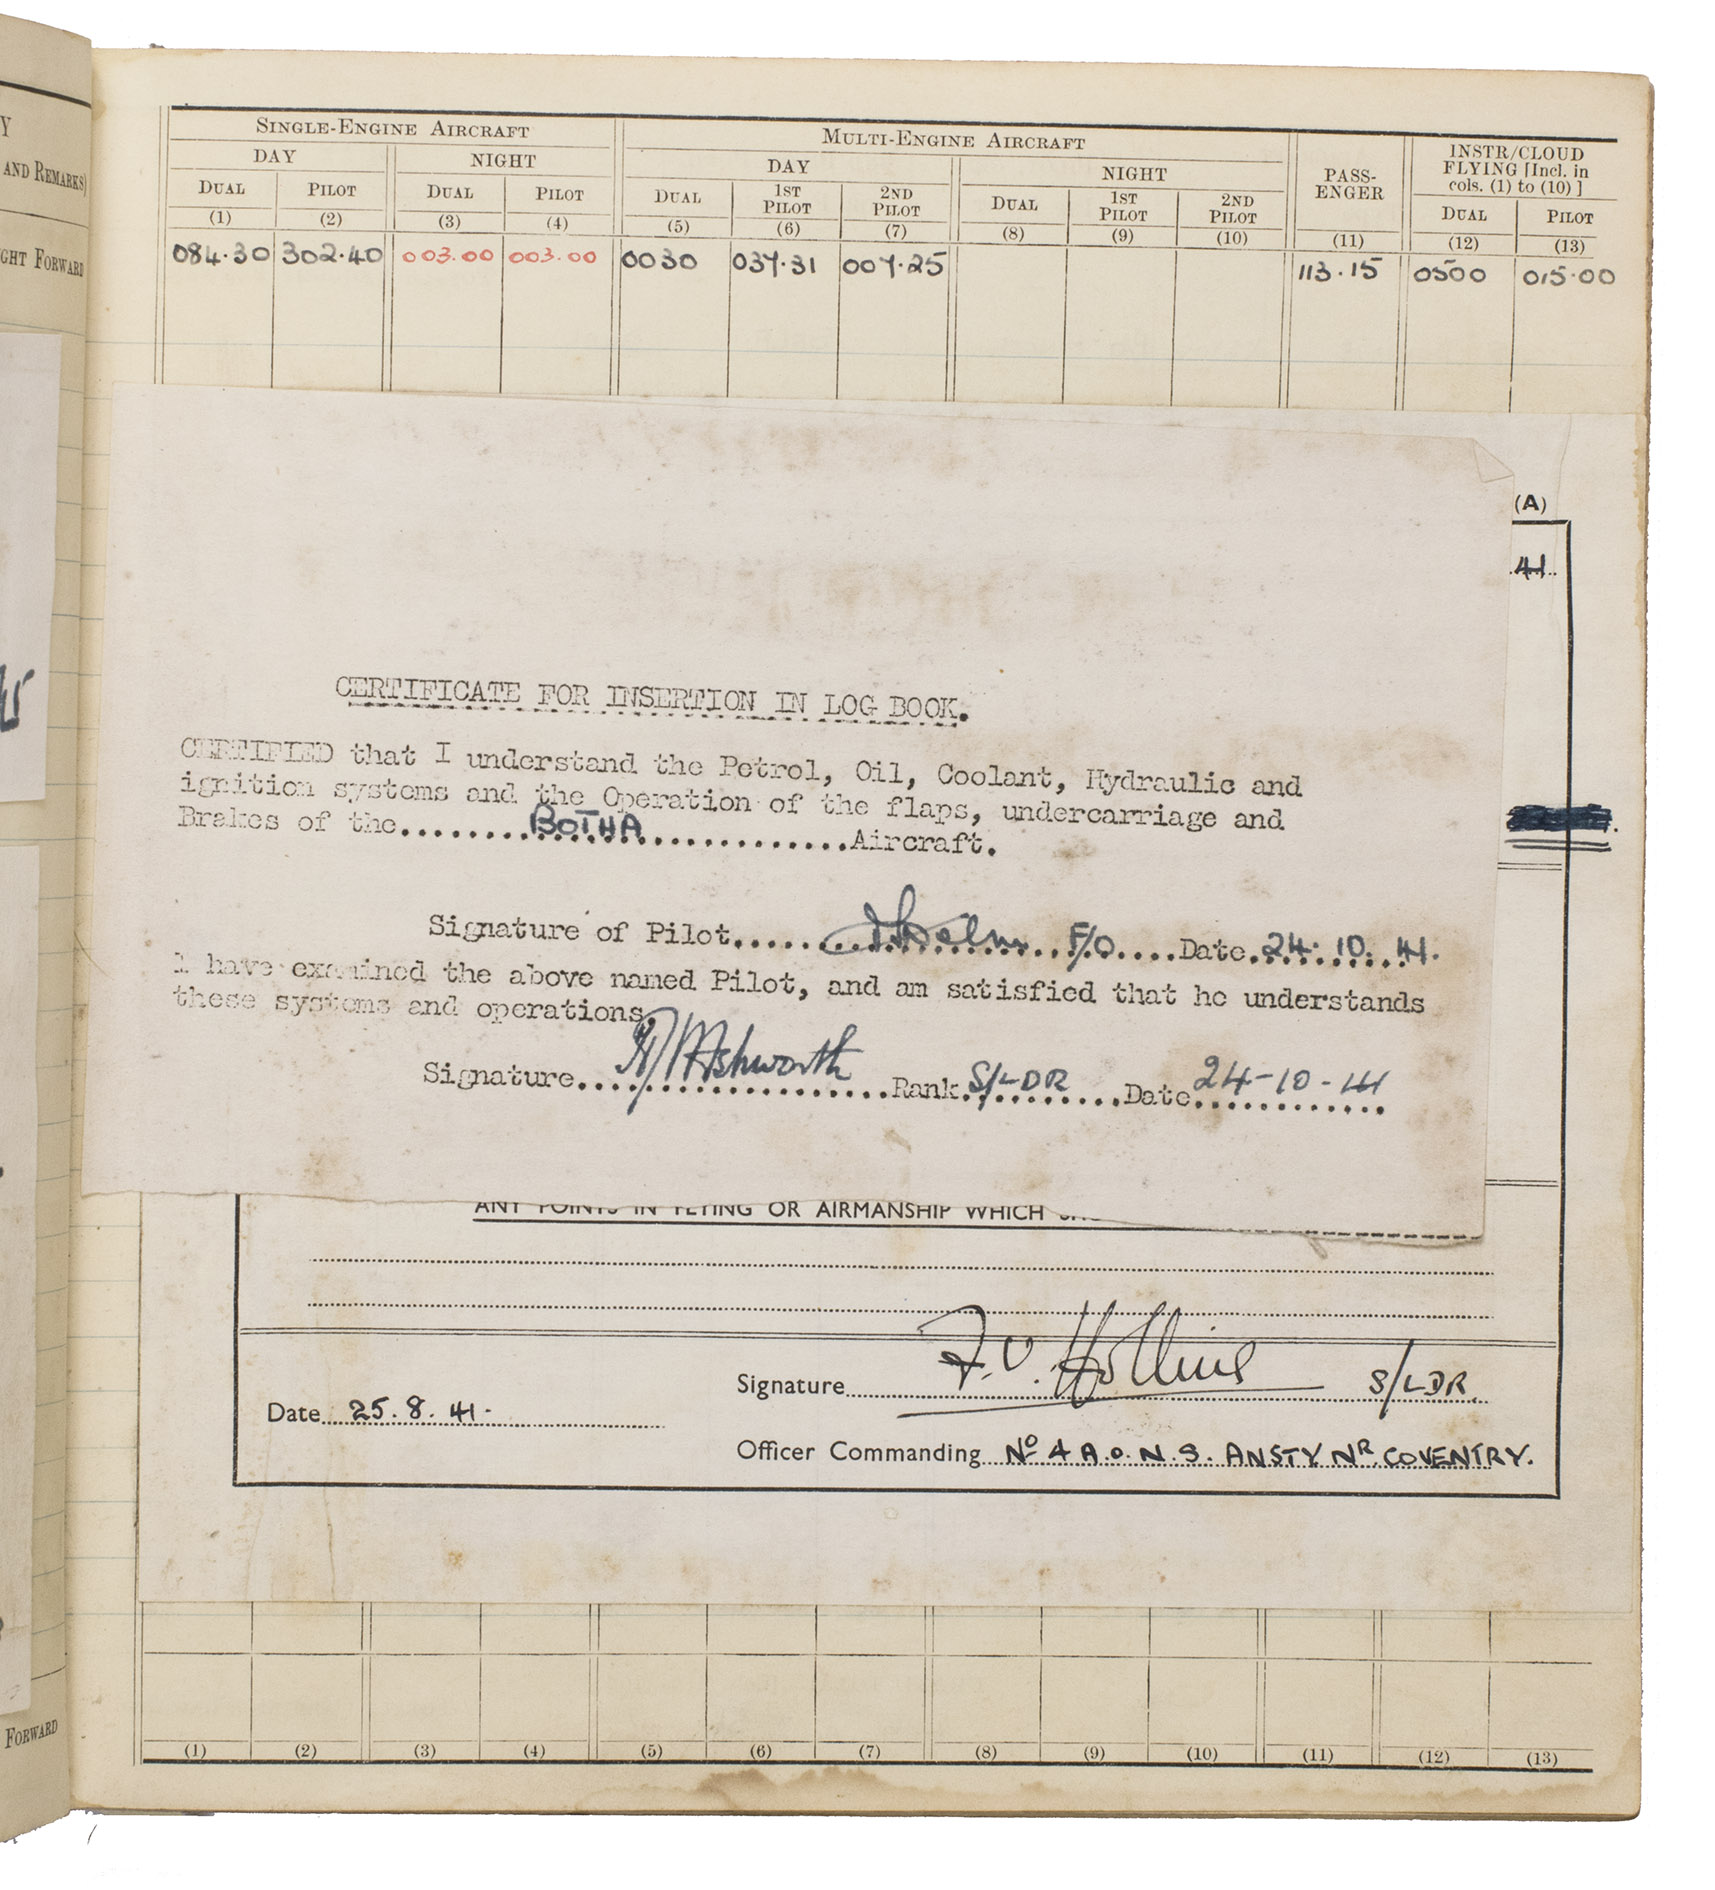 Y
AND REMARKS)
GHT FORWARD
SINGLE-ENGINE AIRCRAFT MULTI-ENGINE AIRCRAFT PASS-ENGER INSTR/CLOUD FLYING [Incl. in cols. (1) to (10) ]
DAY NIGHT DAY NIGHT
DUAL PILOT DUAL PILOT DUAL 1ST PILOT 2ND PILOT DUAL 1ST PILOT 2ND PILOT DUAL PILOT
(1) (2) (3) (4) (5) (6) (7) (8) (9) (10) (11) (12) (13)
084.30 302.40 003.00 003.00 0030 037.31 007.25 113.15 0500 015.00
(A)
41
CERTIFICATE FOR INSERTION IN LOG BOOK.
CERTIFIED that I understand the Petrol, Oil, Coolant, Hydraulic and
ignition systems and the Operation of the flaps, undercarriage and
Brakes of the BOTHA Aircraft.
Signature of Pilot F/O Date 24.10.41.
I have examined the above named Pilot, and am satisfied that he understands
these systems and operations.
Signature Ashworth Rank S/LDR Date 24-10-41
ANY POINTS IN FLYING OR AIRMANSHIP WHICH
Signature F.V. Hollins S/LDR.
Date 25.8.41.
Officer Commanding No 4 A.O.N.S. ANSTY NR COVENTRY.
FORWARD
(1) (2) (3) (4) (5) (6) (7) (8) (9) (10) (11) (12) (13)